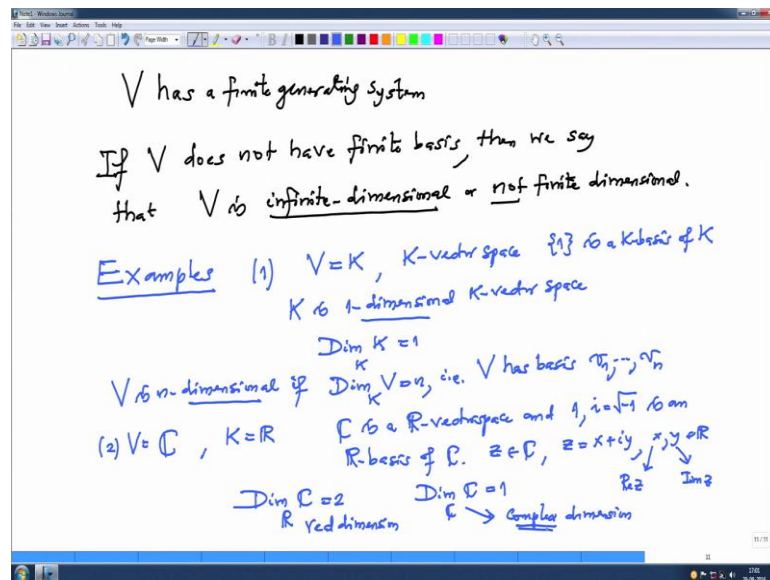 Note1 - Windows Journal
File Edit View Insert Actions Tools Help
Page Width
V has a finite generating system
If V does not have finite basis, then we say
that V is infinite-dimensional or not finite dimensional.
Examples (1) V = K, K-vector space {1} is a K-basis of K
K is 1-dimensional K-vector space
Dim_K K = 1
V is n-dimensional if Dim_K V = n, i.e. V has basis v_1, ..., v_n
(2) V = ℂ, K = ℝ ℂ is a ℝ-vector space and 1, i = √-1 is an
ℝ-basis of ℂ. z ∈ ℂ, z = x + iy, x, y ∈ ℝ
Re z Im z
Dim_ℝ ℂ = 2 Dim_ℂ ℂ = 1
real dimension complex dimension
11/11
11
17:01